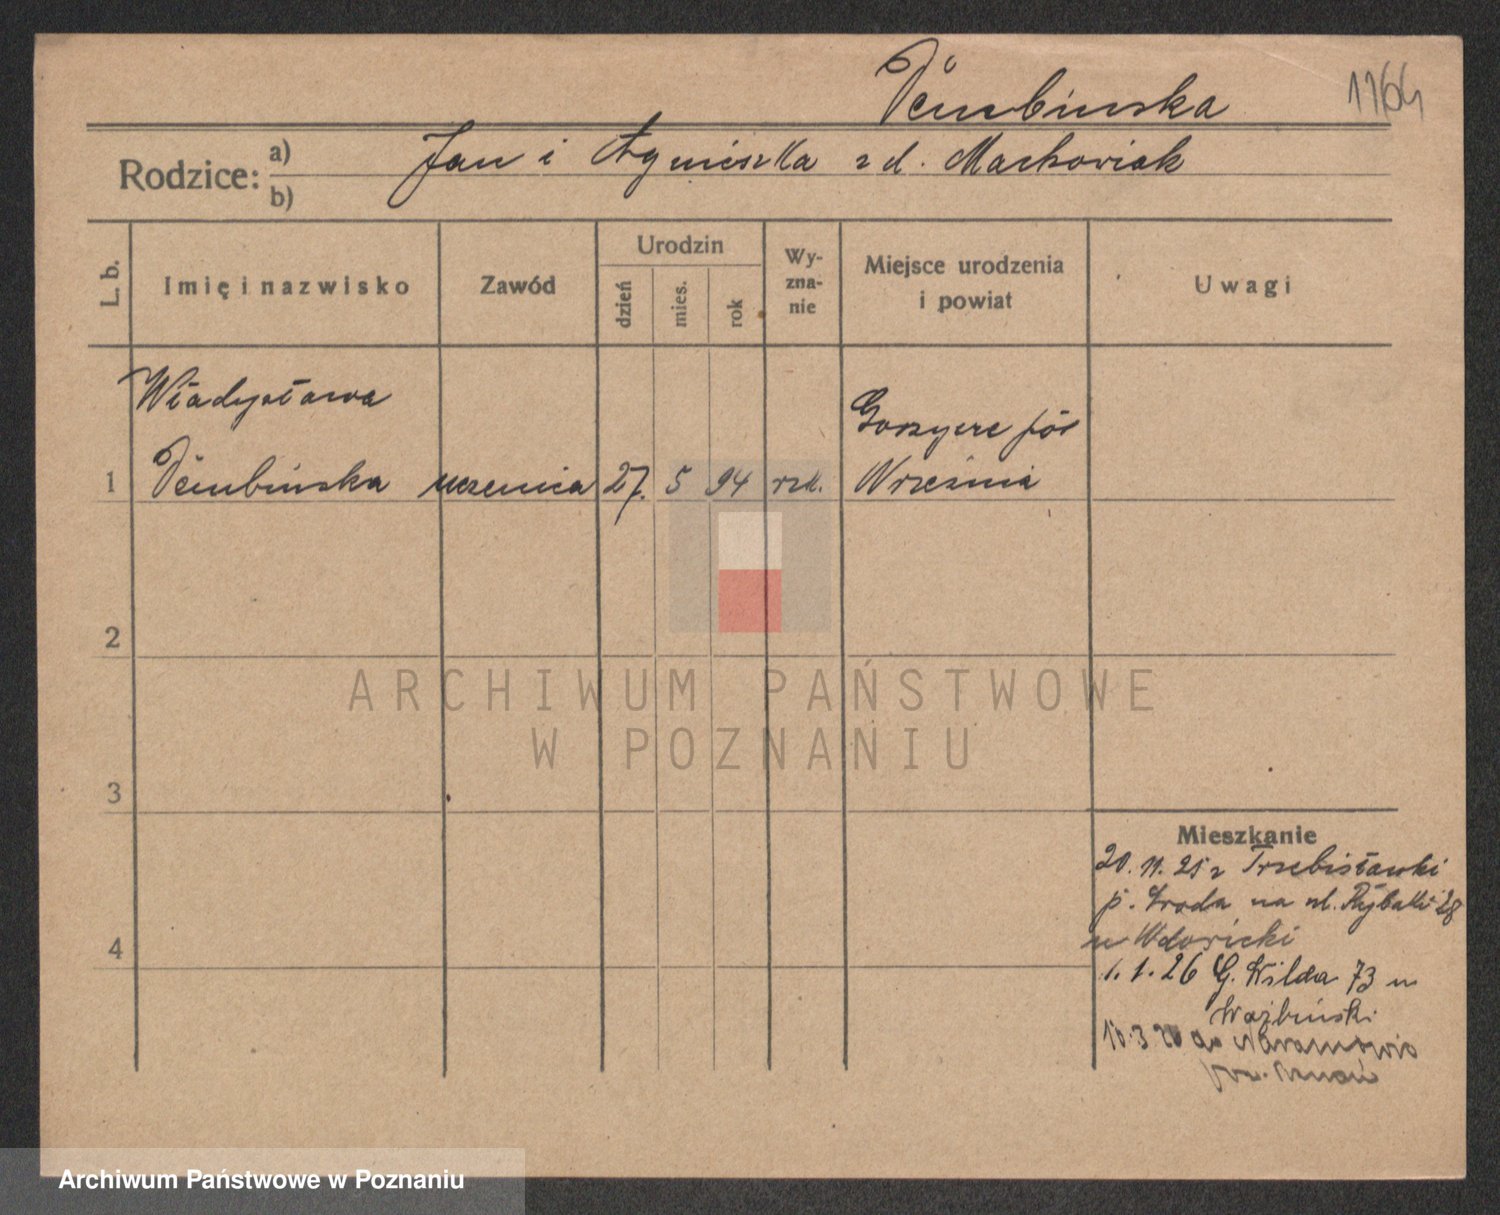 Dembinska
1164
Rodzice:
a) Jan i Agnieszka z d. Machowiak
b)
L. b.
Imię i nazwisko
Zawód
Urodzin
dzień
mies.
rok
Wy-
zna-
nie
Miejsce urodzenia
i powiat
Uwagi
Władysława
Gorzyce
1 Dembinska uczenica 27. 5 94 rzk. Września
2
ARCHIWUM PAŃSTWOWE
W POZNANIU
3
Mieszkanie
20. 11. 25 z Trzebisławki
p. Sroda na ul. Rybaki 28
u Wdowicki
4
1. 1. 26 G. Wilda 73 u
10.3 do Naramowic
Archiwum Państwowe w Poznaniu